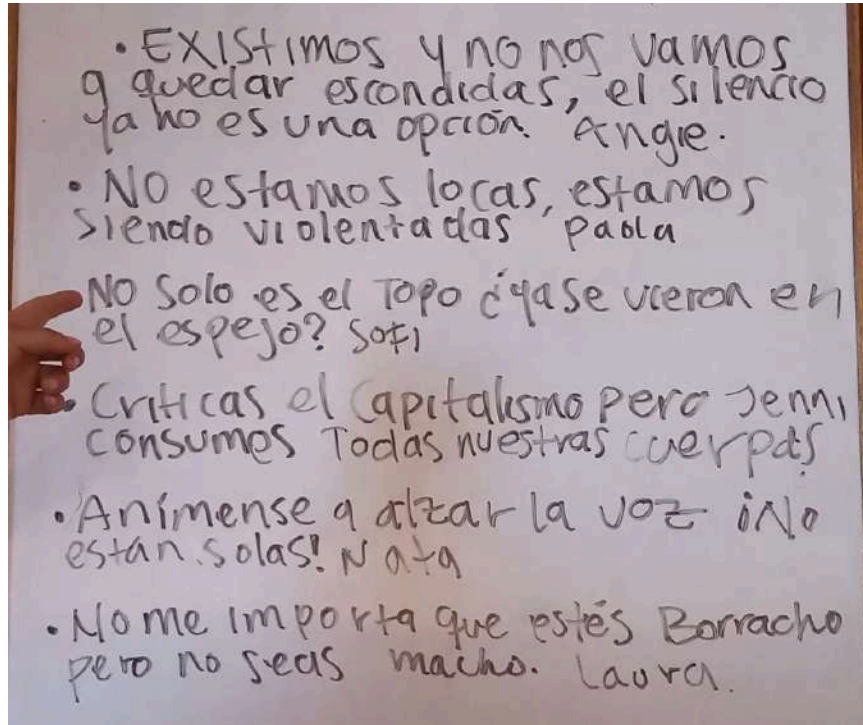 • EXIStimos y no nos vamos
a quedar escondidas, el silencio
ya no es una opción. Angie.
• NO estamos locas, estamos
siendo violentadas paola
NO Solo es el Topo ¿ya se vieron en
el espejo? Sofi
• Criticas el Capitalismo pero Jenni
consumes Todas nuestras cuerpas
• Anímense a alzar la voz ¡No
están solas! Nata
• No me importa que estés Borracho
pero no seas macho. Laura.